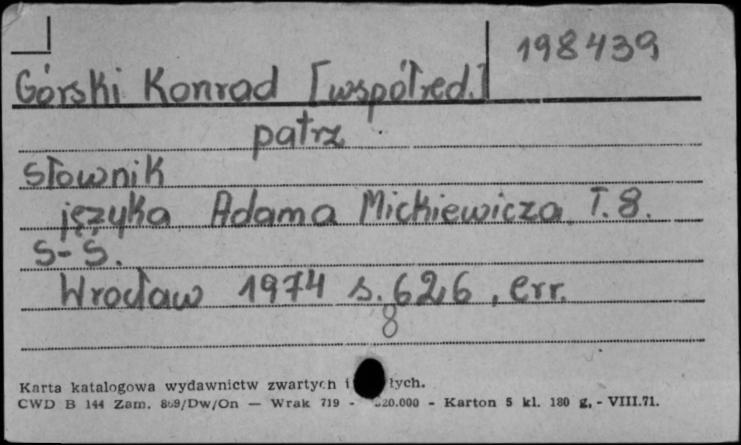 198439
Górski Konrad [współred.]
patrz
Słownik
języka Adama Mickiewicza T. 8.
S-Ś.
Wrocław 1974 s. 626, err.
8
Karta katalogowa wydawnictw zwartych i łych.
CWD B 144 Zam. /Dw/On — Wrak 719 - 20.000 - Karton 5 kl. 180 g. - VIII.71.